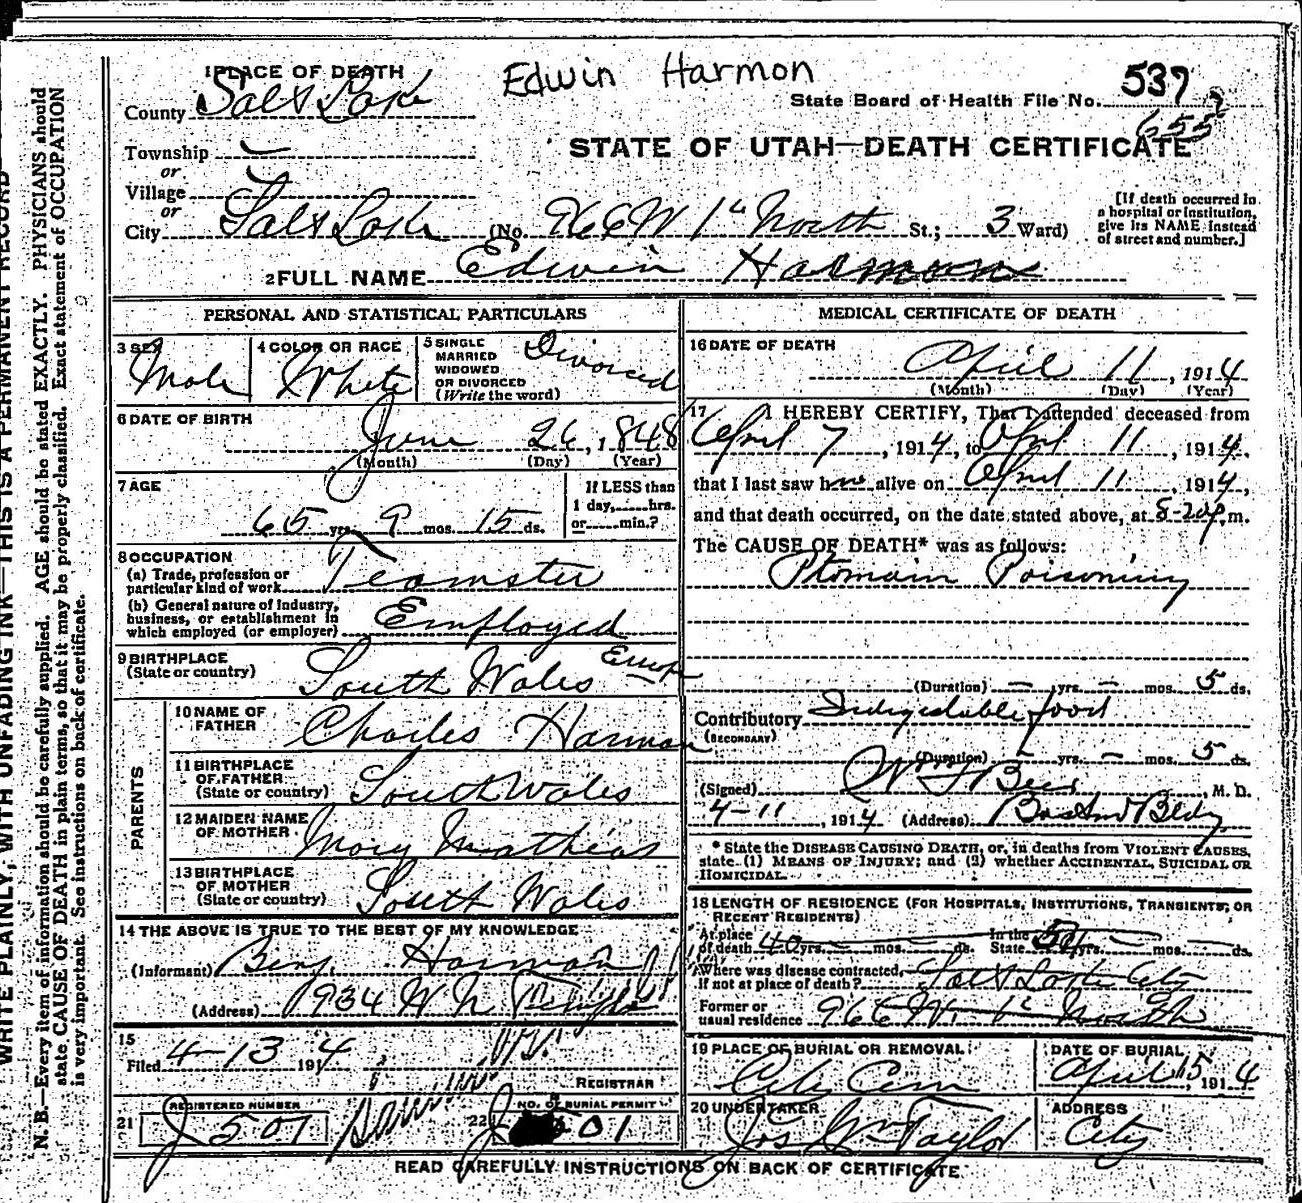 1 PLACE OF DEATH
Edwin Harmon
County Salt Lake
State Board of Health File No. 537
655
Township
or
Village
or
STATE OF UTAH—DEATH CERTIFICATE
City Salt Lake (No. 966 W 1st North St.; 3 Ward)
[If death occurred in
a hospital or institution,
give its NAME instead
of street and number.]
2 FULL NAME Edwin Harmon
PERSONAL AND STATISTICAL PARTICULARS
3 SEX Male
4 COLOR OR RACE White
5 SINGLE
MARRIED
WIDOWED
OR DIVORCED
(Write the word)
Divorced
6 DATE OF BIRTH
June 26, 1848
(Month) (Day) (Year)
7 AGE
65 yrs. 9 mos. 15 ds.
If LESS than
1 day,......hrs.
or......min.?
8 OCCUPATION
(a) Trade, profession or
particular kind of work Teamster
(b) General nature of industry,
business, or establishment in
which employed (or employer) Employed
9 BIRTHPLACE
(State or country) South Wales Europe
PARENTS
10 NAME OF
FATHER Charles Harmon
11 BIRTHPLACE
OF FATHER
(State or country) South Wales
12 MAIDEN NAME
OF MOTHER Mary Mathias
13 BIRTHPLACE
OF MOTHER
(State or country) South Wales
14 THE ABOVE IS TRUE TO THE BEST OF MY KNOWLEDGE
(Informant) Benj. Harman
(Address) 934 W N Temple
15
Filed 4-13 1914
REGISTRAR
21 REGISTERED NUMBER
J 501
22 NO. OF BURIAL PERMIT
J 501
MEDICAL CERTIFICATE OF DEATH
16 DATE OF DEATH
April 11, 1914
(Month) (Day) (Year)
17 I HEREBY CERTIFY, That I attended deceased from
April 7, 1914, to April 11, 1914,
that I last saw him alive on April 11, 1914,
and that death occurred, on the date stated above, at 8-20 p.m.
The CAUSE OF DEATH* was as follows:
Ptomain Poisoning
(Duration) — yrs. — mos. 5 ds.
Contributory Indigestable food
(SECONDARY)
(Duration) — yrs. — mos. 5 ds.
(Signed) Wm F Beer, M. D.
4-11, 1914 (Address) Boston Bldg
* State the DISEASE CAUSING DEATH, or, in deaths from VIOLENT CAUSES,
state (1) MEANS OF INJURY; and (2) whether ACCIDENTAL, SUICIDAL OR
HOMICIDAL.
18 LENGTH OF RESIDENCE (FOR HOSPITALS, INSTITUTIONS, TRANSIENTS, OR
RECENT RESIDENTS)
At place
of death 40 yrs. — mos. — ds. In the
State yrs. — mos. — ds.
Where was disease contracted,
if not at place of death? Salt Lake City
Former or
usual residence 966 W. 1st North
19 PLACE OF BURIAL OR REMOVAL
City Cem
DATE OF BURIAL
April 15, 1914
20 UNDERTAKER
Jos Wm Taylor
ADDRESS
City
READ CAREFULLY INSTRUCTIONS ON BACK OF CERTIFICATE.
WRITE PLAINLY, WITH UNFADING INK—THIS IS A PERMANENT RECORD
N. B.—Every item of information should be carefully supplied. AGE should be stated EXACTLY. PHYSICIANS should
state CAUSE OF DEATH in plain terms, so that it may be properly classified. Exact statement of OCCUPATION
is very important. See instructions on back of certificate.